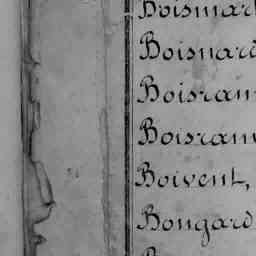 Boismard
Boisnard
Boisram
Boisram
Boivent,
Bongard